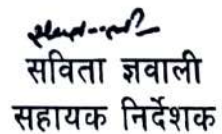 सविता ज्ञवाली
सहायक निर्देशक